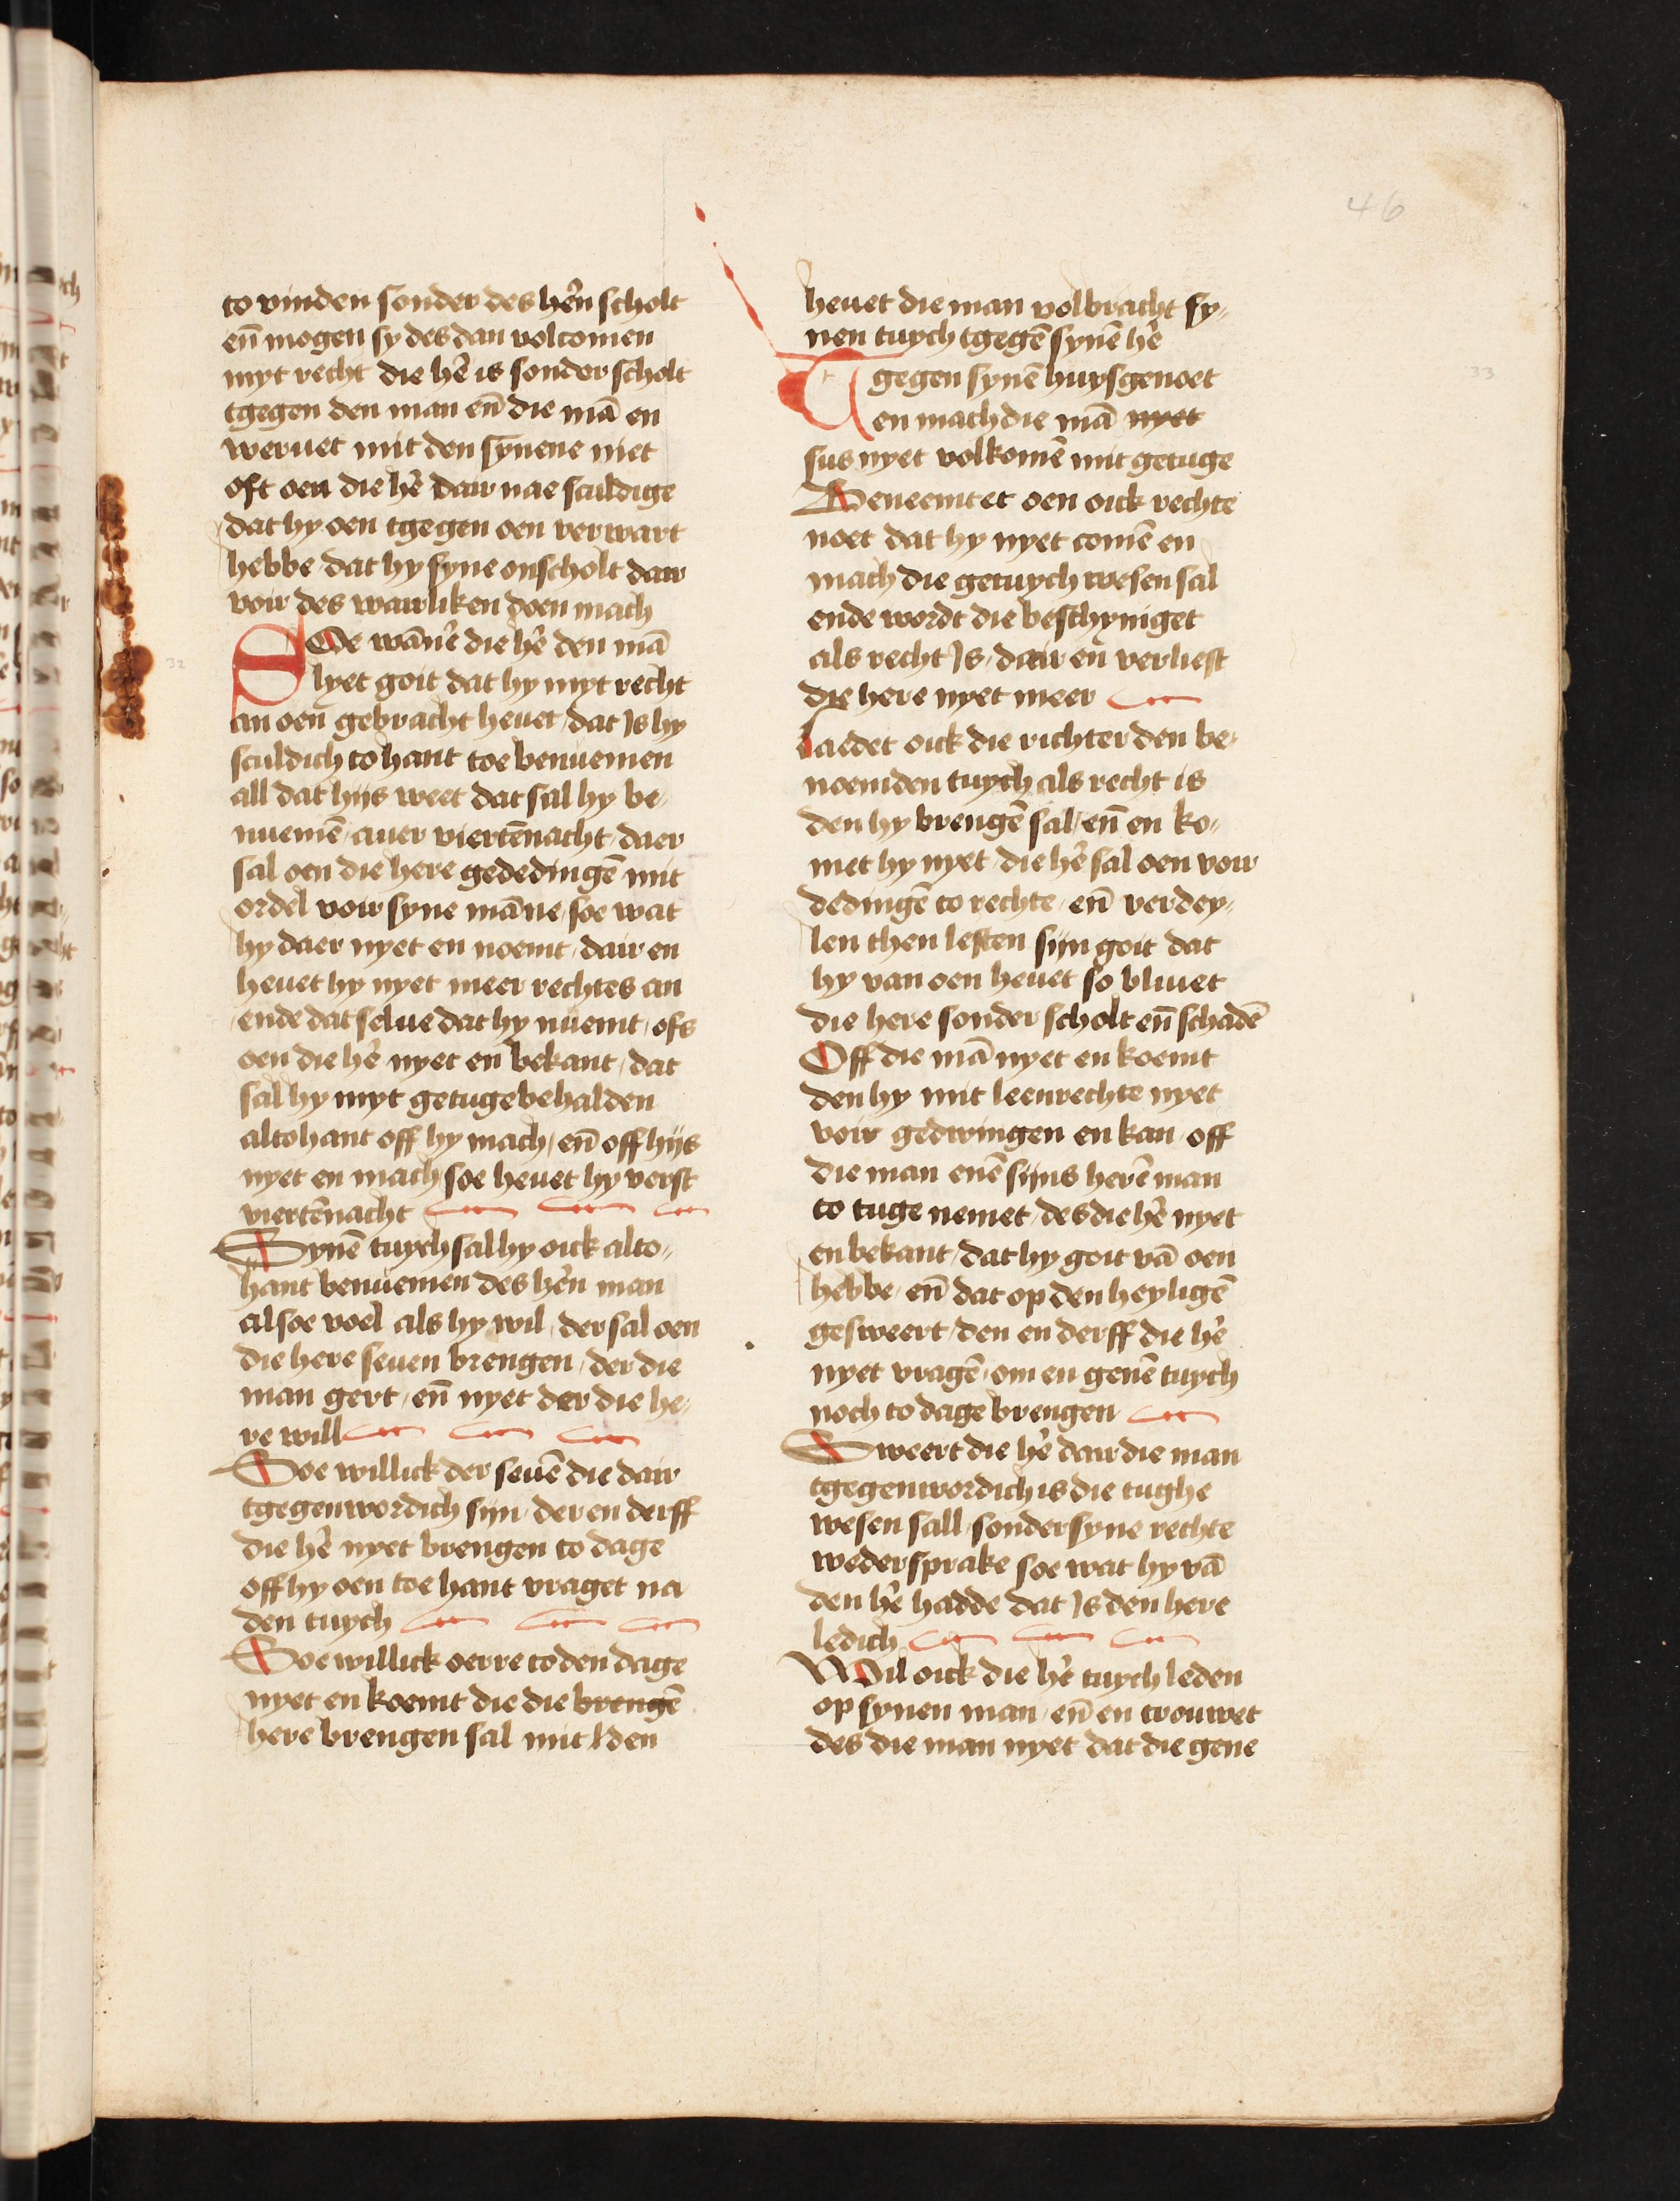 46
to vinden sonder des hẽn scholt
eñ mogen sy des dan volcomen
myt recht die hẽ is sonder scholt
tgegen den man eñ die mã en
weruet mit den synene niet
oft oen die hẽ dair nae sculdige
dat hy oen tgegen oen verwart
hebbe dat hy syne onscholt dair
voir des wairliken doen mach
32
SOe wãnẽ die hẽ den mã
lyet goit dat hy myt recht
an oen gebracht heuet / dat Is hy
sculdich to hant toe benuemen
all dat hijs weet dat sal hy be„
nuemẽ / auer viertẽnacht / daer
sal oen die here gededingẽ mit
ordel voir syne mãne / soe wat
hy daer nyet en noemt / dair en
heuet hy nyet meer rechtes an
ende dat selue dat hy nuemt / ofs
oen die hẽ nyet en bekant / dat
sal hy myt getuge behalden
altohant off hy mach / eñ off hijs
nyet en mach soe heuet hy verst
viertẽnacht
Synẽ tuych sal hy oick alto„
hant benuemen des hẽn man
alsoe voel als hy wil / der sal oen
die here seuen brengen / der die
man gert / eñ nyet der die he„
re will
Soe willick der seuẽ die dair
tgegenwordich sijn / der en derff
die hẽ nyet brengen to dage
off hy oen toe hant vraget na
den tuych
Soe willick oerre to den dage
nyet en koemt die die brengẽ
here brengen sal mit den
heuet die man volbracht sy„
nen tuych tgegẽ synẽ hẽ
33
Tgegen synẽ huysgenoet
en mach die mã nyet
sus nyet volkomẽ mit getuge
Beneemt et oen oick rechte
noet dat hy nyet comẽ en
mach die getuych wesen sal
ende wordt die beschyniget
als recht Is / dair en verliest
die here nyet meer
laedet oick die richter den be„
noemden tuych als recht is
den hy brengẽ sal / eñ en ko„
met hy nyet / die hẽ sal oen voir
dedingẽ to rechte / eñ verdey„
len then lesten sijn goit dat
hy van oen heuet so bliuet
die here sonder scholt eñ schadẽ
Off die mã nyet en koemt
den hy mit leenrechte nyet
voir gedwingen en kan / off
die man enẽ sijns herẽ man
to tuge nemet / des die hẽ nyet
en bekant / dat hy goit vã oen
hebbe / eñ dat op den heyligẽ
gesweert / den en derff die hẽ
nyet vragẽ / om en genẽ tuych
noch to dage brengen
Sweert die hẽ dair die man
tgegenwordich is die tughe
wesen sall / sonder syne rechte
wedersprake soe wat hy vã
den hẽ hadde dat Is den here
ledich
Wil oick die hẽ tuych leden
op synen man / eñ en trouwet
des die man nyet dat die gene